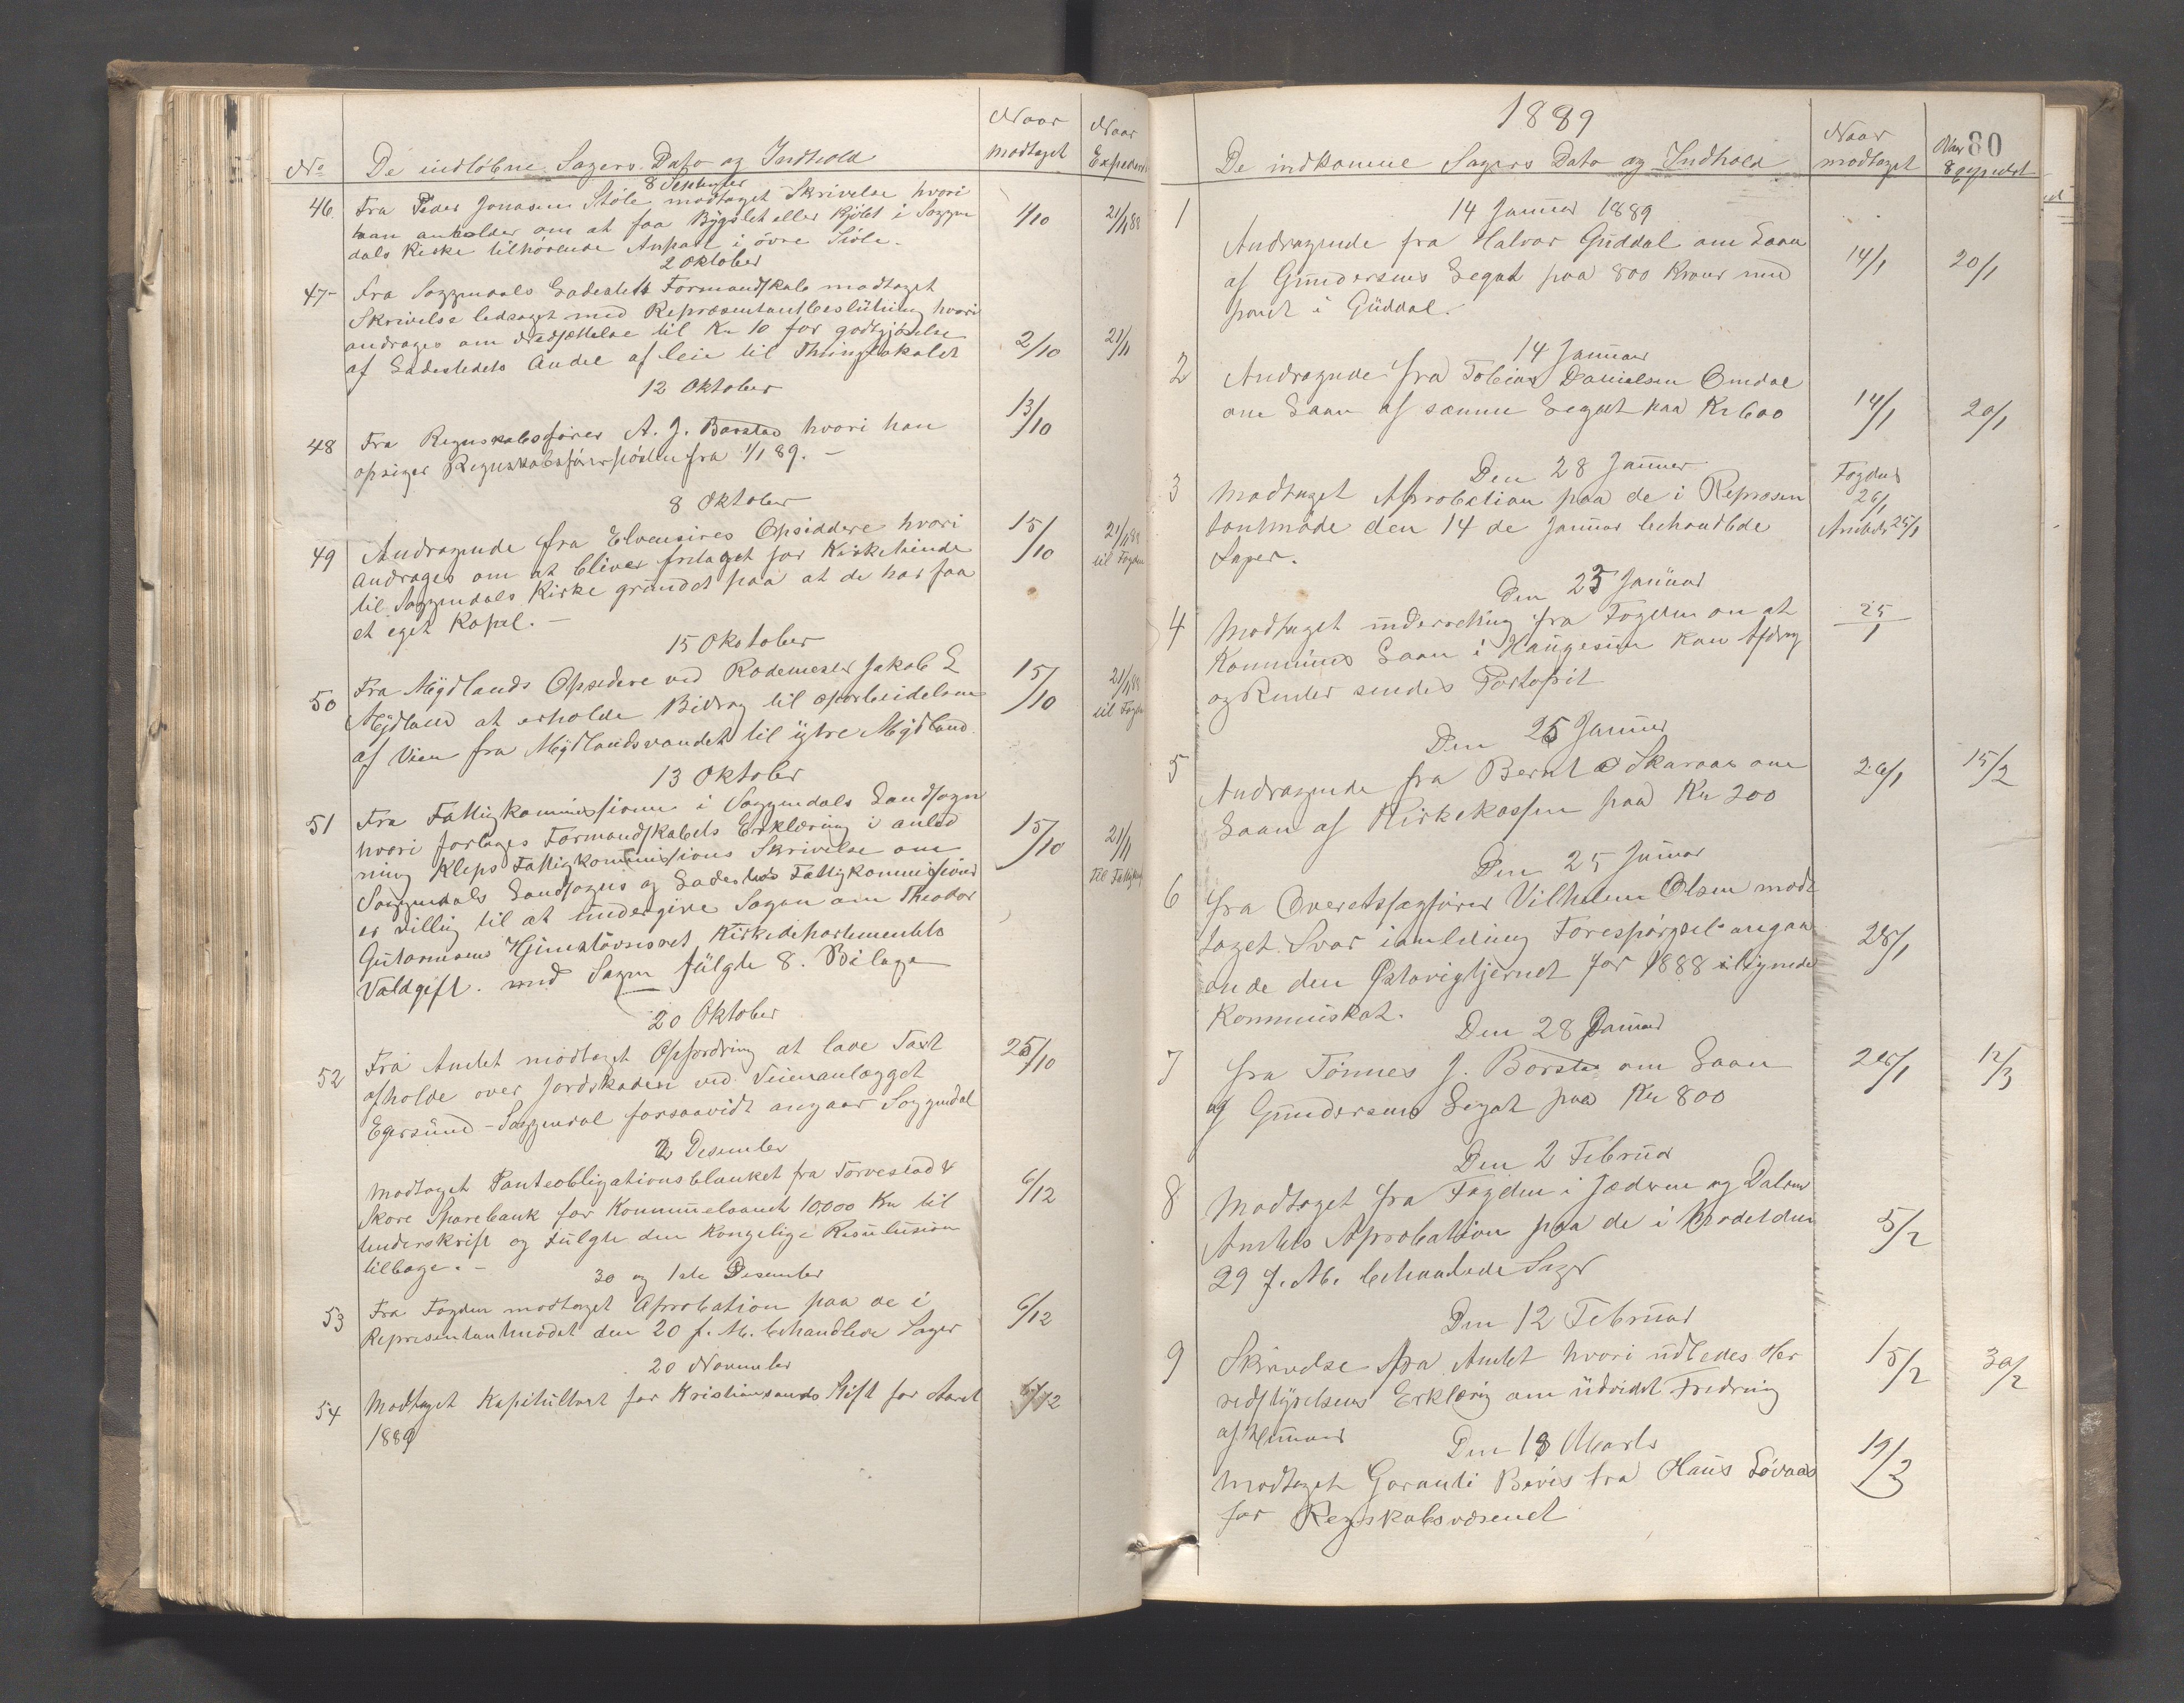 No De indløbne Sagers Dato og Indhold Naar Modtaget Naar Expederet
8 September
46 Fra Peder Jonasen Støle modtaget Skrivelse hvori 4/10 21/11 88
han anholder om at faa Bygslet eller Kjøbt i Soggn
dals Kirke tilhørende Anpart i øvre Støle.
2 Oktober
47 Fra Soggndals Ladesteds Formandskab modtaget
Skrivelse ledsaget med Repræsentantbeslutning hvori
andrages om Nedsættelse til Kr 10 for godtgjørelse
af Ladestedets Andel af leie til Thinglokalet 2/10 21/11
12 Oktober
48 Fra Regnskabsfører A. J. Barstad hvori han 13/10
opsiger Regnskabsførerposten fra 1/1 89. -
8 Oktober
49 Andragende fra Elvensires Opsiddere hvori 15/10 21/11 88
andrages om at bliver fritaget for Kirketiende til Fogden
til Soggndals Kirke grundet paa at de har faa
et eget Kapel. -
15 Okotober
50 Fra Mydlands Opsidere ved Rodemester Jakob L 15/10 21/11 88
Mydland at erholde Bidrag til oparbeidelsen til Fogden
af Veien fra Mydlandsvandet til ytre Mydland.
13 Oktober
51 Fra Fattigkommissionen i Soggndals Landsogn
hvori forlages Formandskabets Erklæring i anled
ning Kleps Fattigkommissions Skrivelse om 15/10 21/11
Soggndals Landsogns og Ladesteds Fattigkommissioner Til Fattigkom
er villig til at undergive Sagen om Theodor
Gutormsens Hjemstavnsret Kirkedepartementets
Valdgift. med Sagen fulgte 8. Bilage
20 Oktober
52 Fra Amtet modtaget Opfordring at lave Taxt 25/10
afholde over Jordskaden ved Veienanlægget
Egersund - Soggendal forsaavidt angaar Soggndal
2 Desember
Modtaget Panteobligationsblanket fra Torvestad & 6/12
Skore Sparebank for Kommunelaanet 10,000 Kr til
Underskrift og fulgte den Kongelige Resulusion
tilbage. -
30 og 1ste Desember
53 Fra Fogden modtaget Aprobation paa de i 6/12
Representantmødet den 20 f. M. behandlede Sager
20 November
54 Modtaget Kapitultaxt for Kristiansands Stift for Aaret /12
1889
1889
80
De indkomne Sagers Dato og Indhold Naar modtaget Naar Expedert
14 Januar 1889
1 Andragende fra Halvor Guddal om Laan 14/1 20/1
af Gundersens Legat paa 800 Kroner med
pant i Guddal.
14 Januar
2 Andragende fra Tobias Danielsen Omdal
om Laan af samme Legat paa Kr 600 14/1 20/1
Den 28 Januar
3 Modtaget Aprobation paa de i Represen Fogdens 26/1
tantmøde den 14 de Januar behandlede Amtets 25/1
Sager.
Den 25 Januar
4 Modtaget underretning fra Fogden om at 25/1
Kommunens Laan i Haugesun kan Afdrag
og Renter sendes Portofrit
Den 25 Januar
5 Andragende fra Bernt Skaraas om 26/1 15/2
Laan af Kirkekassen paa Kr 200
Den 25 Januar
6 fra Overetssagfører Vilhelm Olsen mod
taget Svar i anledning Forespørgsel angaa 28/1
ende den Østavigtjernet for 1888 iligende
Kommuskat.
Den 28 Januar
7 fra Tønnes J. Borstad om Laan 28/1 12/3
af Gundersens Legat paa Kr 800
Den 2 Februar
8 Modtaget fra Fogden i Jæderen og Dalene
Amtets Aprobation paa de i Mødet den 5/2
29 f. M. behandlede Sager
Den 12 Februar
9 Skrivelse fra Amtet hvori udbedes Her 15/2 30/2
redstyrelsens Erklæring om udvidet Fredning
af Hummer
Den 18 Marts
Modtaget Garanti Bevis fra Hans Løvaas 19/3
for Regnskabsvæsenet